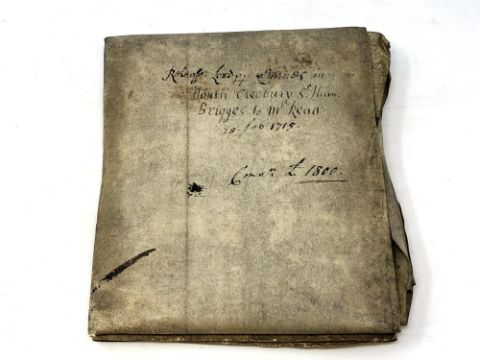 Release Lordpp & Mines in
North Cleobury Sr Hum:
Brigges to Mr Read
28. feb 1715.
Consn £ 1800.